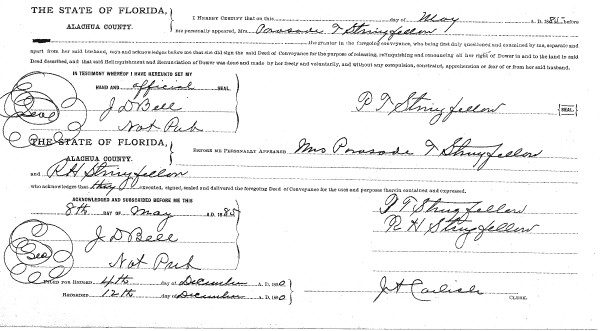 THE STATE OF FLORIDA,
ALACHUA COUNTY.
I HEREBY CERTIFY that on this day of May A. D. 188 before
me personally appeared, Mrs. Porasade T Stringfellow
the grantor in the foregoing conveyance, who being duly questioned and examined by me, separate and
apart from her said husband, says and acknowledges before me that she did sign the said Deed of Conveyance for the purpose of releasing, relinquishing and renouncing all her right of Dower in and to the land in said
Deed described, and that said Relinquishment and Renunciation of Dower was done and made by her freely and voluntarily, and without any compulsion, constraint, apprehension or fear of or from her said husband.
IN TESTIMONY WHEREOF I HAVE HEREUNTO SET MY
HAND AND official SEAL.
Seal
J D Bell
Not Pub
P T Stringfellow
SEAL.
THE STATE OF FLORIDA,
ALACHUA COUNTY.
BEFORE ME PERSONALLY APPEARED Mrs Porasade T Stringfellow
and R H Stringfellow
who acknowledges that they executed, signed, sealed and delivered the foregoing Deed of Conveyance for the uses and purposes therein contained and expressed.
ACKNOWLEDGED AND SUBSCRIBED BEFORE ME THIS
8th DAY OF May A.D. 188
P T Stringfellow
R H Stringfellow
J D Bell
Seal
Not Pub
FILED FOR RECORD 4th day of December A. D. 1880
RECORDED 12th day of December A. D. 1880
J A Carlisle
CLERK.